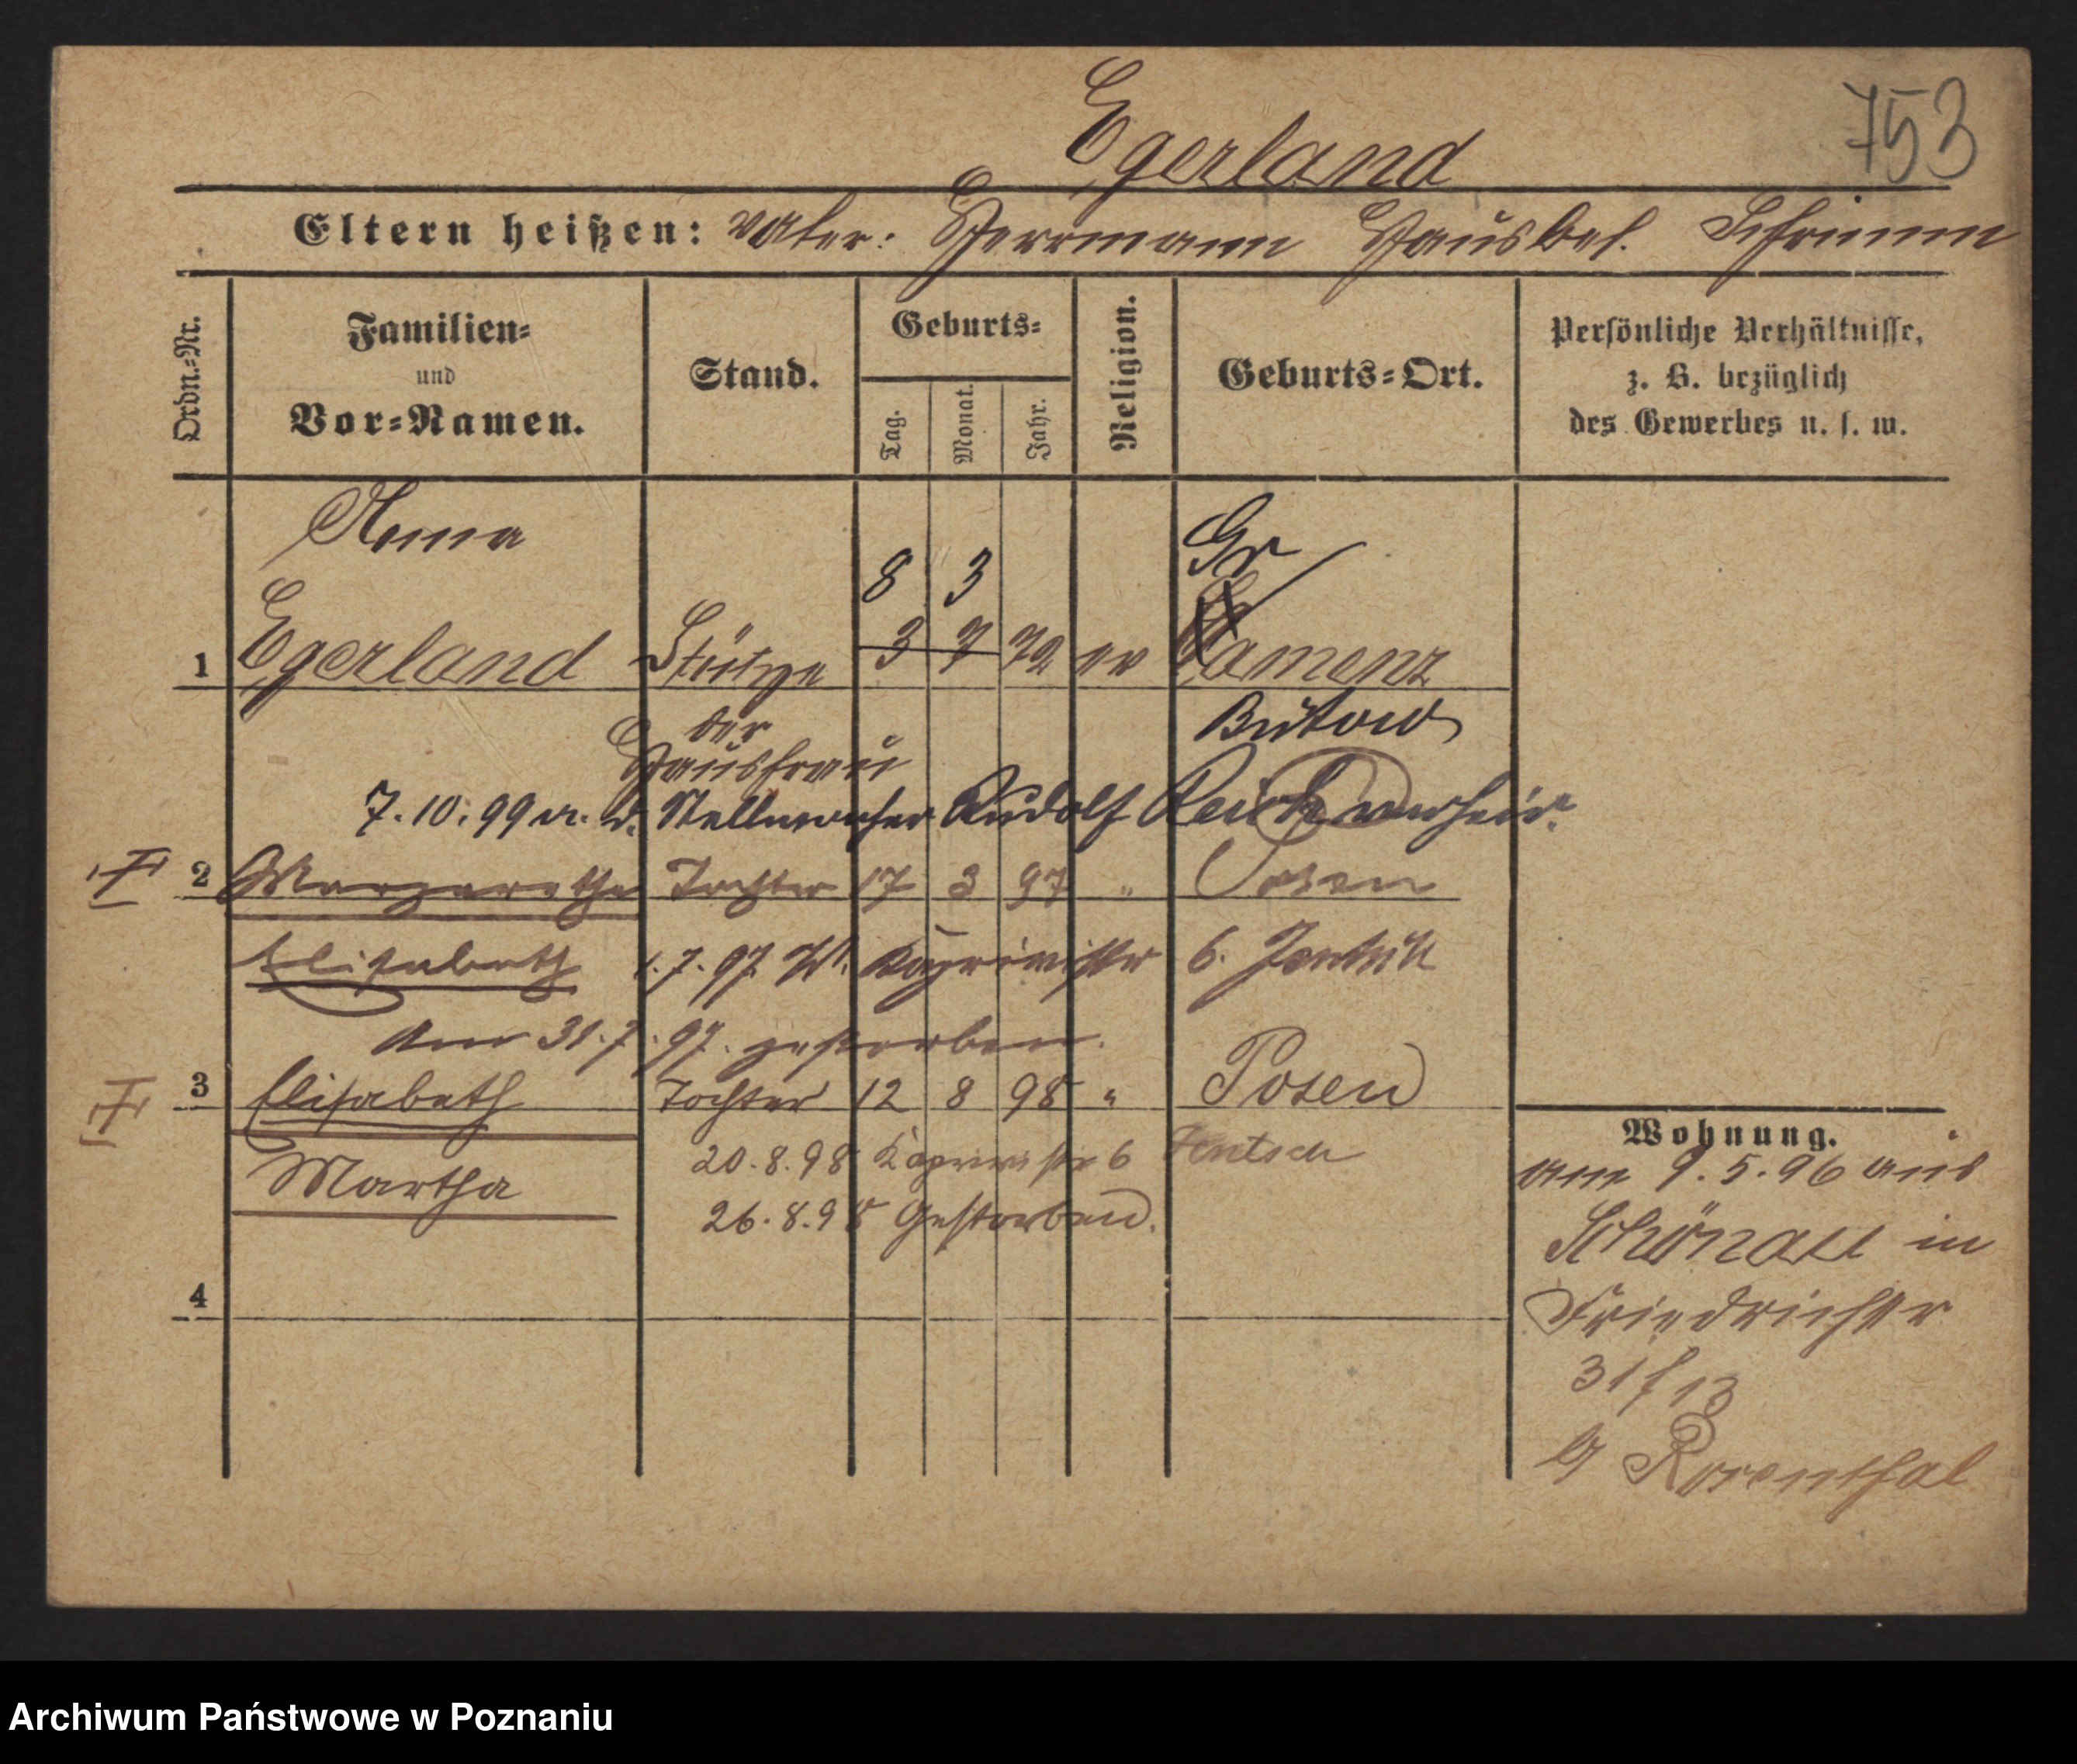 753
Egerland
Eltern heißen: Vater: Herrmann Hausbes. Schrimm
Ordn.-Nr.
Familien-
und
Vor-Namen.
Stand.
Geburts-
Tag.
Monat.
Jahr.
Religion.
Geburts-Ort.
Persönliche Verhältnisse,
z. B. bezüglich
des Gewerbes u. s. w.
Anna
Gr
8 3
1 Egerland Stütze 3 7 72 ev Camenz
der Bütow
Hausfrau
7.10.99 m. d. Stellmacher Rudolf Reich verheir.
2 Margarethe Tochter 17 3 97 " Posen
Elisabeth 1.7.97 W. Kaprivistr 6. Jentsch
Am 31.7.97. gestorben.
3 Elisabeth Tochter 12 8 98 " Posen
Martha 20.8.98 Kaprivistr 6 Jentsch
26.8.98 Gestorben.
4
Wohnung.
am 9.5.96 aus
Schönau in
Friedrichstr
31
b/ Rosenthal
Archiwum Państwowe w Poznaniu